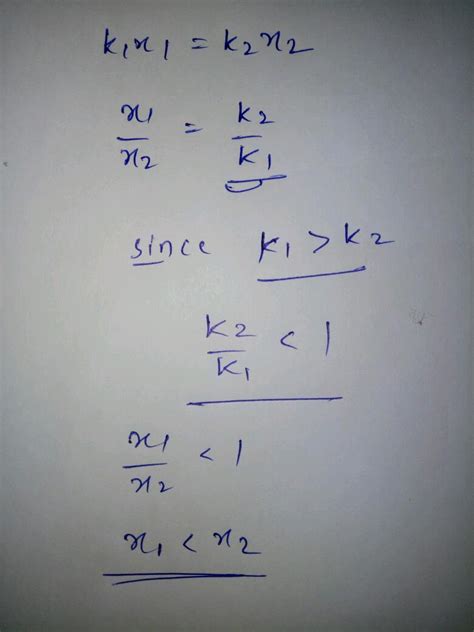 k₁x₁ = k₂x₂
x₁/x₂ = k₂/k₁
since k₁ > k₂
k₂/k₁ < 1
x₁/x₂ < 1
x₁ < x₂